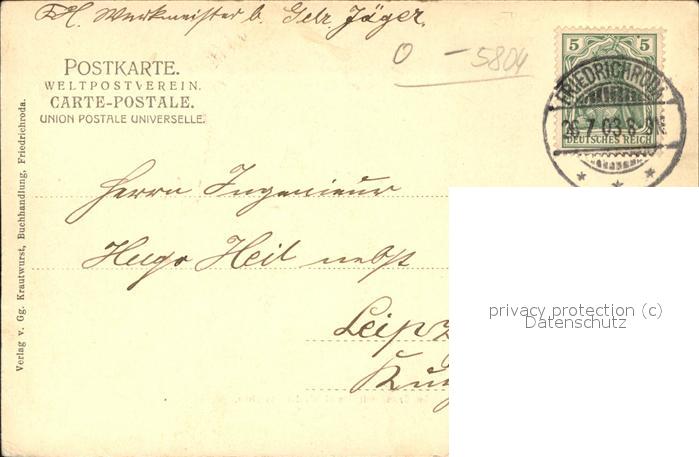 H. Werkmeister b. Gebr. Jäger.
0 – 5804
POSTKARTE.
WELTPOSTVEREIN.
CARTE-POSTALE.
UNION POSTALE UNIVERSELLE.
5 5
DEUTSCHES REICH
FRIEDRICHRODA
26 7 03 8-9N
Verlag v. Gg. Krautwurst, Buchhandlung, Friedrichroda.
Herrn Ingenieur
Hugo Heil nebst
Leipz
privacy protection (c)
Datenschutz